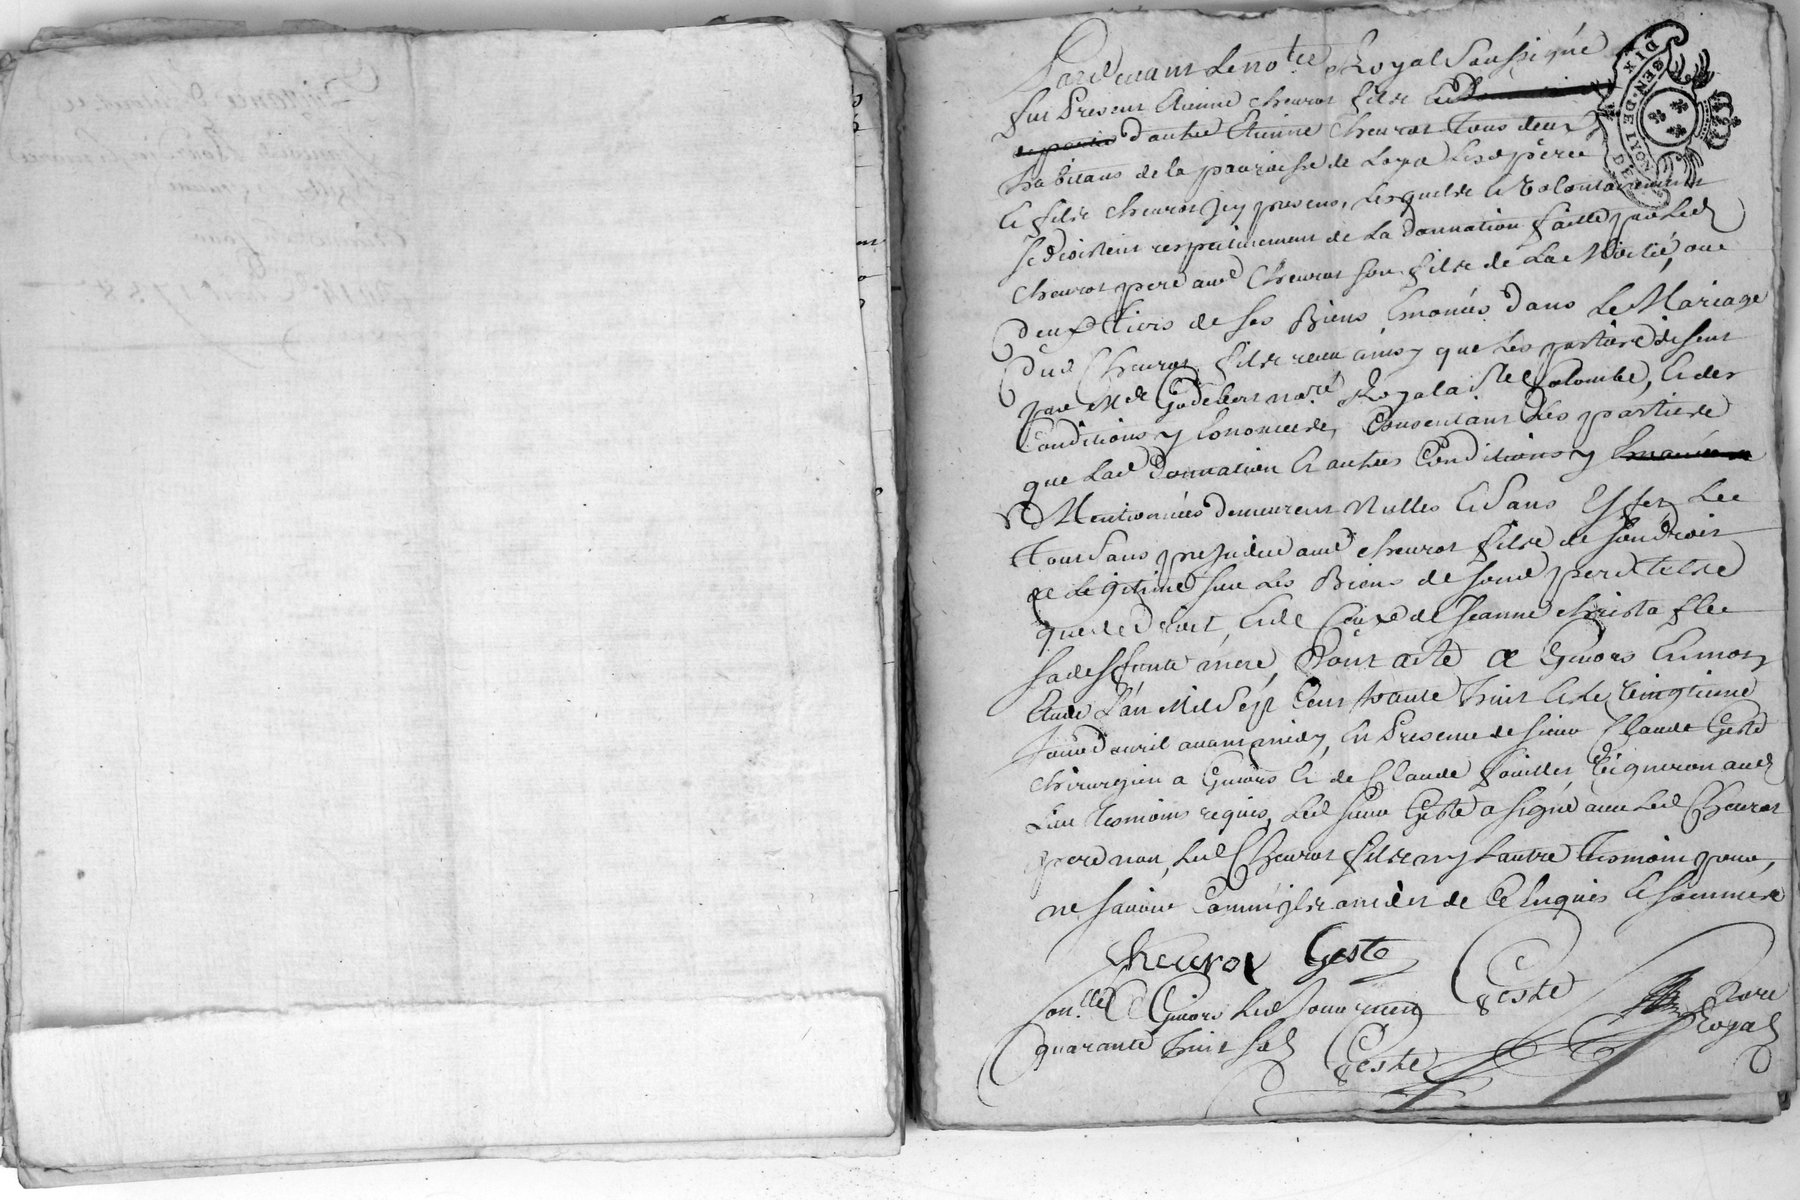 Pardevant le not.re Royal soussigné
fut Present Etienne cheurot fils de
d'autre Etienne cheurot tous deux
habitans de la parroisse de Loyse Lesd pere
et fils cheurot icy presens, lesquels de volontairement
se desistent respectivement de la donnation faitte par led
cheurot pere aud Cheurot son fils de la Moitié, ou
deux tiers de ses Biens Enoncés dans le Mariage
dud Cheurot fils receu ainsy que les parties disent
par Me not.re Royal a Ste Colombe, et des
Conditions y Enoncées, Consentant les parties
que lad Donnation et autres Conditions y
Mentionnées demeurent Nulles et Sans Effet Le
tout sans prejudice aud cheurot fils de son droit
de legitime sur les Biens de sond pere telle
que de droit, et de Ceux de Jeanne christofle
sa deffunte mere, Dont acte a Givors en mon
Etude L'an Mil Sept Cent soixante huit et le vingtieme
jour d'avril avant midy, En Presence de sieur Claude Geste
chirurgien a Givors et de Claude vigneron aud
Lieu tesmoins requis, Led sieur Geste a signé avec led Cheurot
pere non led Cheurot fils ny l'autre tesmoin pour
ne savoir comme ils ont dit de ce Enquis et sommés
Cheurot Geste
Geste
Con.llé a Givors led jour
Nore
Royal
quarante huit sol
Geste
DIX DEN. DE LYON